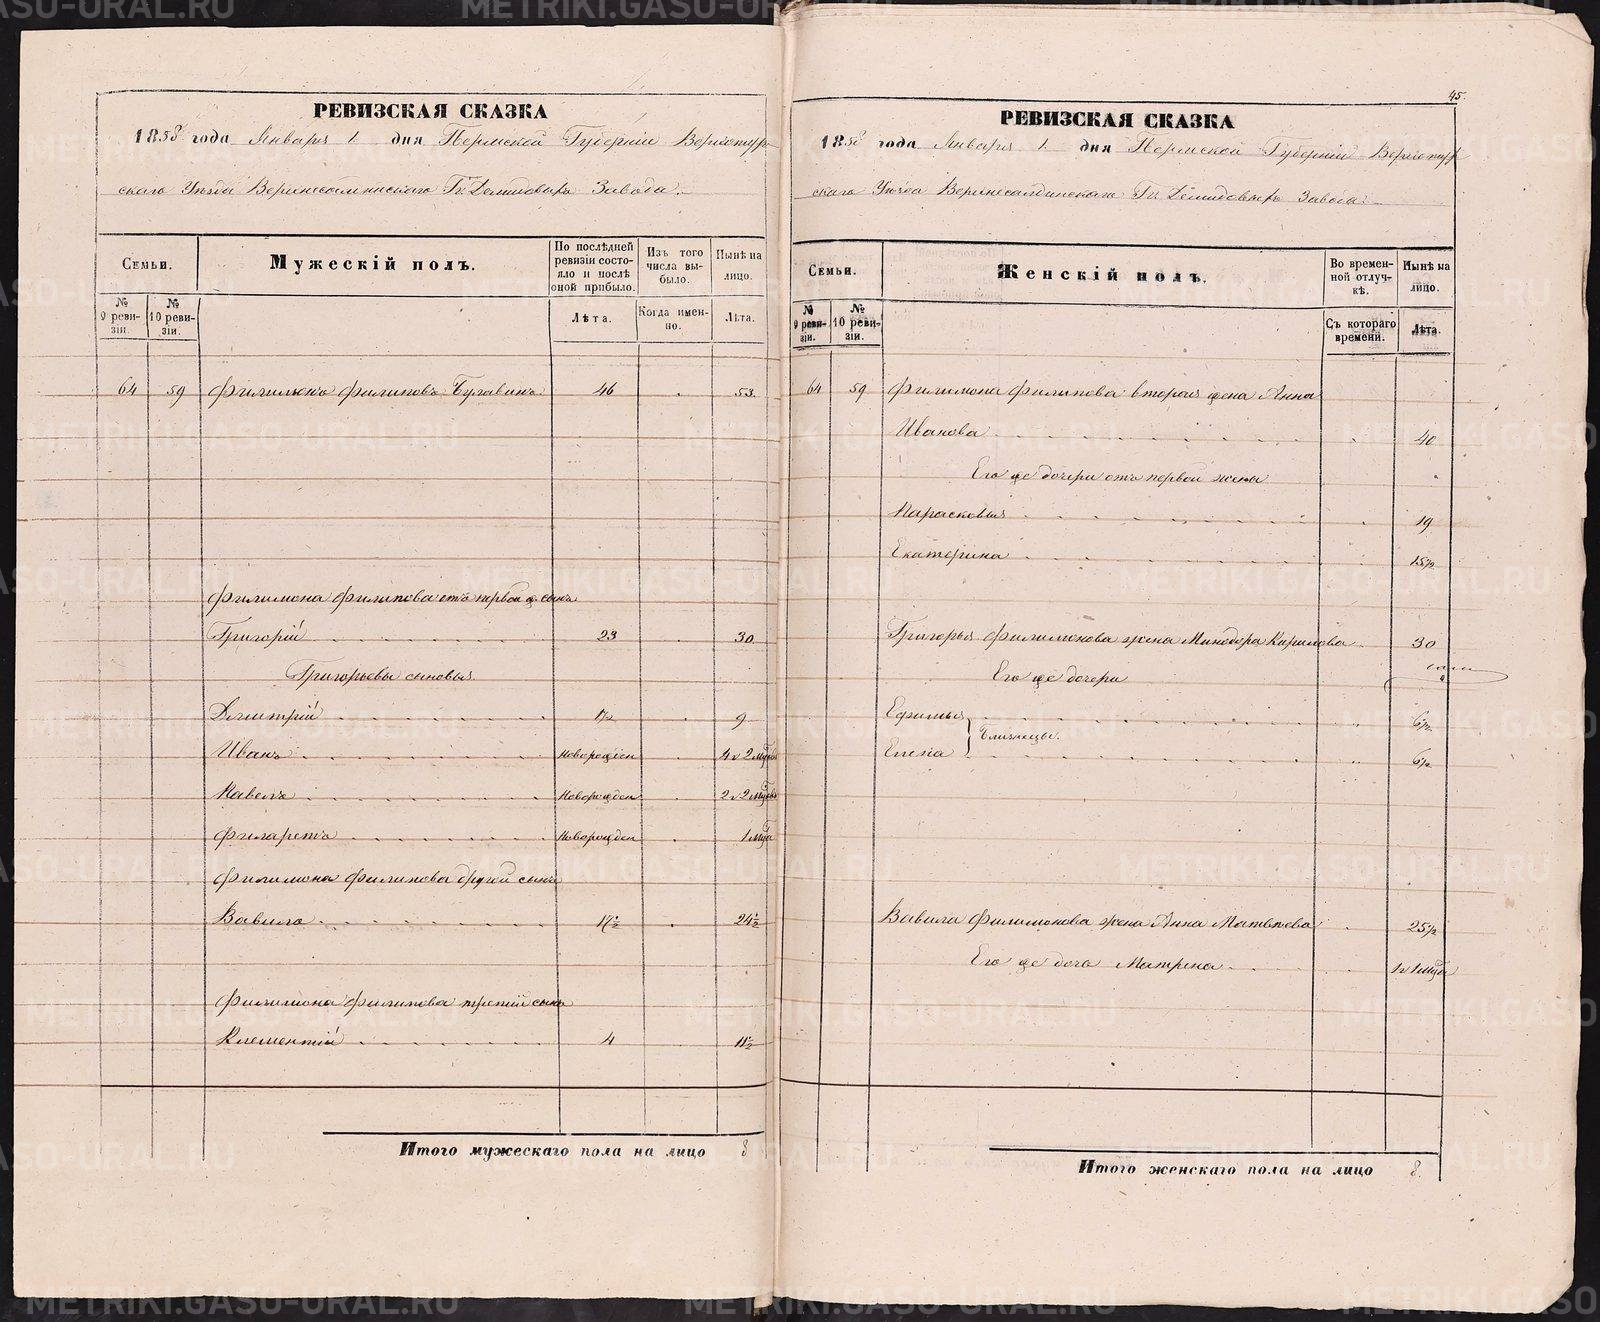 РЕВИЗСКАЯ СКАЗКА
1858 года Января 1 дня Пермской Губерніи Верхотур-
скаго Уѣзда Верхнесалдинскаго Гг. Демидовыхъ Завода.
Семьи.
Мужескій полъ.
По послѣдней ревизіи состояло и послѣ оной прибыло.
Изъ того числа выбыло.
Нынѣ на лицо.
№ 9 ревизіи.
№ 10 ревизіи.
Лѣта.
Когда именно.
Лѣта.
64 59 Филимонъ Филиповъ Булавинъ 46 53
Филимона Филипова отъ первой ж сынъ
Григорій 23 30
Григорьевы сыновья
Дмитрій 1½ 9
Иванъ новорожден 4 и 2 мца
Павелъ новорожден 2 и 2 мца
Филаретъ новорожден 1 мца
Филимона Филипова другой сынъ
Вавило 17½ 24½
Филимона Филипова третій сынъ
Клементій 4 11½
Итого мужескаго пола на лицо 8
45.
РЕВИЗСКАЯ СКАЗКА
1858 года Января 1 дня Пермской Губерніи Верхотур
скаго Уѣзда Верхнесалдинскаго Гг. Демидовыхъ Завода.
Семьи.
Женскій полъ.
Во временной отлучкѣ.
Нынѣ на лицо.
№ 9 ревизіи.
№ 10 ревизіи.
Съ котораго времени.
Лѣта.
64 59 Филимона Филипова вторая жена Анна
Иванова 40
Его же дочери отъ первой жены
Парасковья 19
Екатерина 15½
Григорья Филимонова жена Минодора Кирилова 30
Его же дочери
Ефимья 6½
Близнецы.
Елена 6½
Вавила Филимонова жена Анна Матвѣева 25½
Его же дочь Матрена 1 и 1 мца
Итого женскаго пола на лицо 8.
METRIKI.GASO-URAL.RU